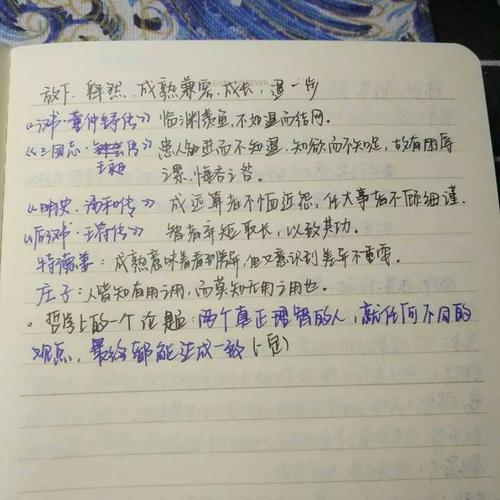 放下、释然、成熟兼容、成长、退一步
《汉书·董仲舒传》临渊羡鱼,不如退而结网。
《三国志·王昶传》患人知进而不知退,知欲而不知足,故有困辱
之累,悔吝之咎。
《明史·汤和传》成远算者不恤近怨,任大事者不顾细谨.
《后汉书·王符传》智者弃短取长,以致其功.
特德姜:成熟意味着看到差异,但又意识到差异不重要.
庄子:人皆知有用之用,而莫知无用之用也.
。哲学上的一个论题:两个真正理智的人,就任何不同的
观点,最终都能达成一致